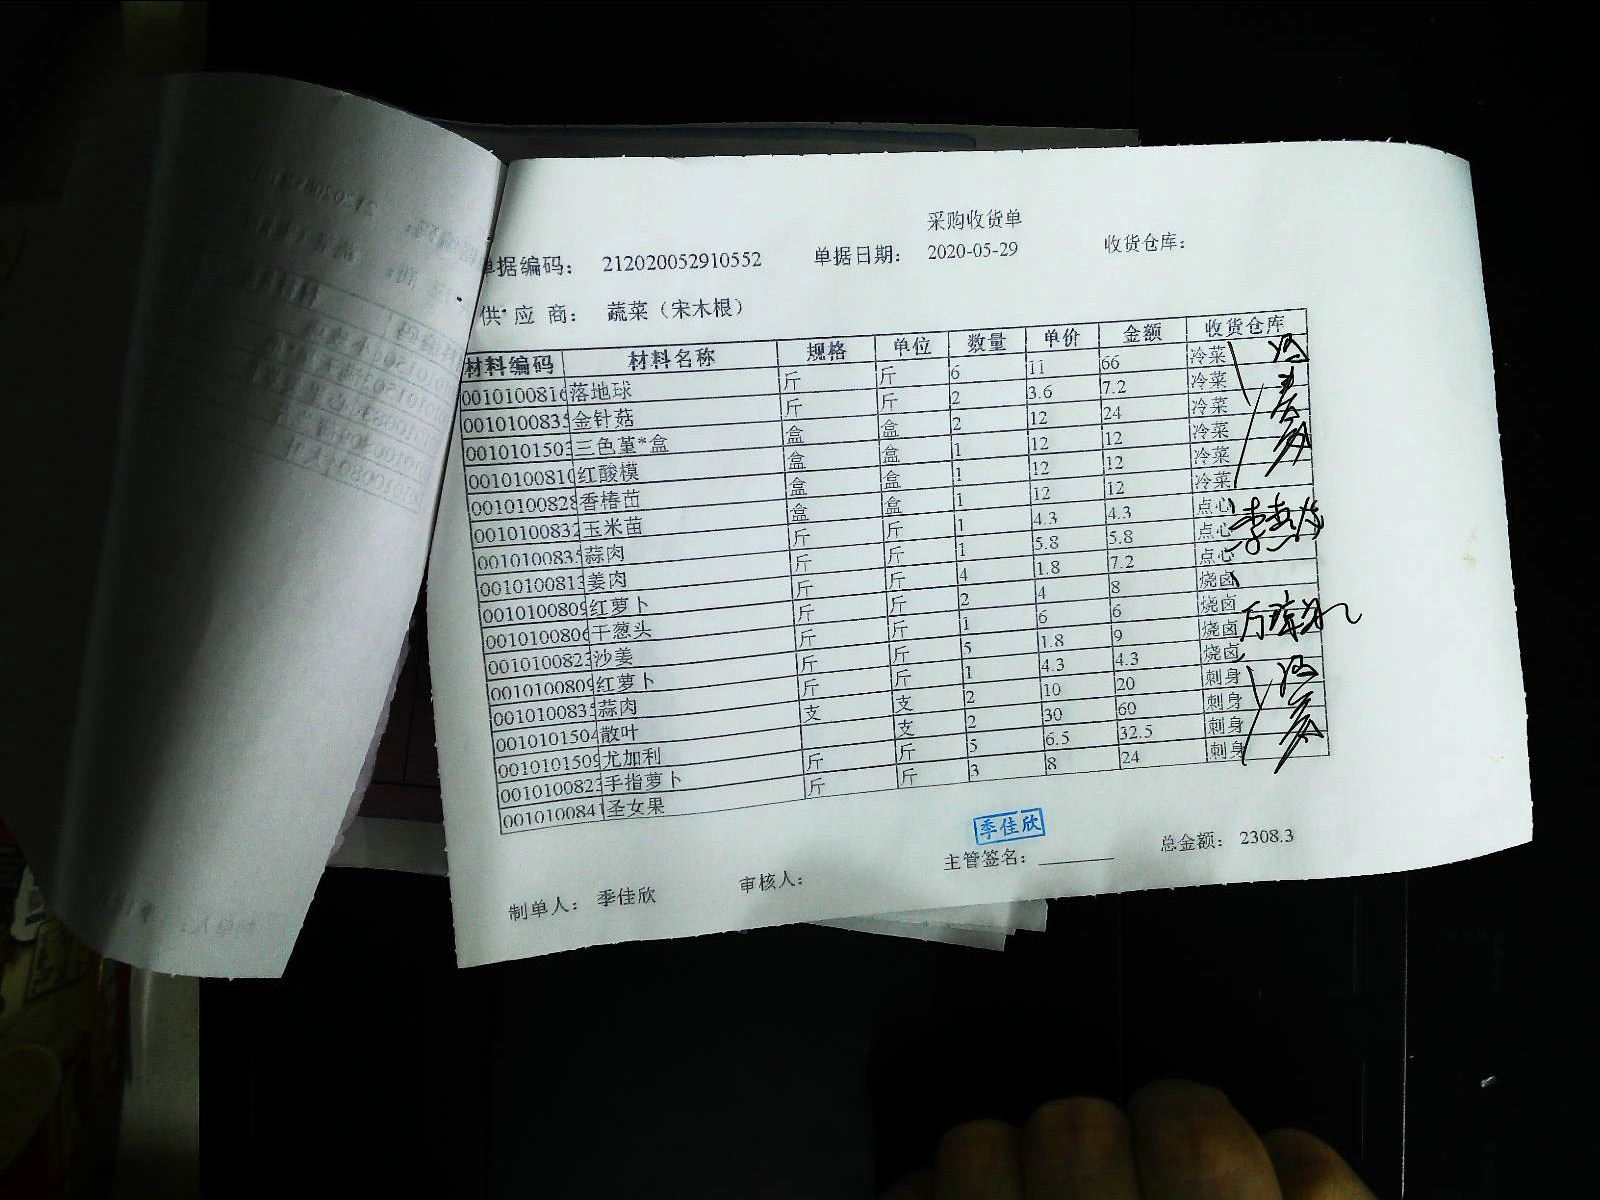 采购收货单
单据编码： 212020052910552 单据日期： 2020-05-29 收货仓库：
供 应 商： 蔬菜（宋木根）
材料编码 材料名称 规格 单位 数量 单价 金额 收货仓库
0010100816 落地球 斤 斤 6 11 66 冷菜
0010100835 金针菇 斤 斤 2 3.6 7.2 冷菜
0010101503 三色堇*盒 盒 盒 2 12 24 冷菜
0010100810 红酸模 盒 盒 1 12 12 冷菜
0010100828 香椿苗 盒 盒 1 12 12 冷菜
0010100832 玉米苗 盒 盒 1 12 12 冷菜
0010100835 蒜肉 斤 斤 1 4.3 4.3 点心
0010100813 姜肉 斤 斤 1 5.8 5.8 点心
0010100809 红萝卜 斤 斤 4 1.8 7.2 点心
0010100806 干葱头 斤 斤 2 4 8 烧卤
0010100823 沙姜 斤 斤 1 6 6 烧卤
0010100809 红萝卜 斤 斤 5 1.8 9 烧卤
0010100835 蒜肉 斤 斤 1 4.3 4.3 刺身
0010101504 散叶 支 支 2 10 20 刺身
0010101509 尤加利 支 2 30 60 刺身
0010100823 手指萝卜 斤 斤 5 6.5 32.5 刺身
0010100841 圣女果 斤 斤 3 8 24 刺身
季佳欣
制单人： 季佳欣 审核人： 主管签名： 总金额： 2308.3